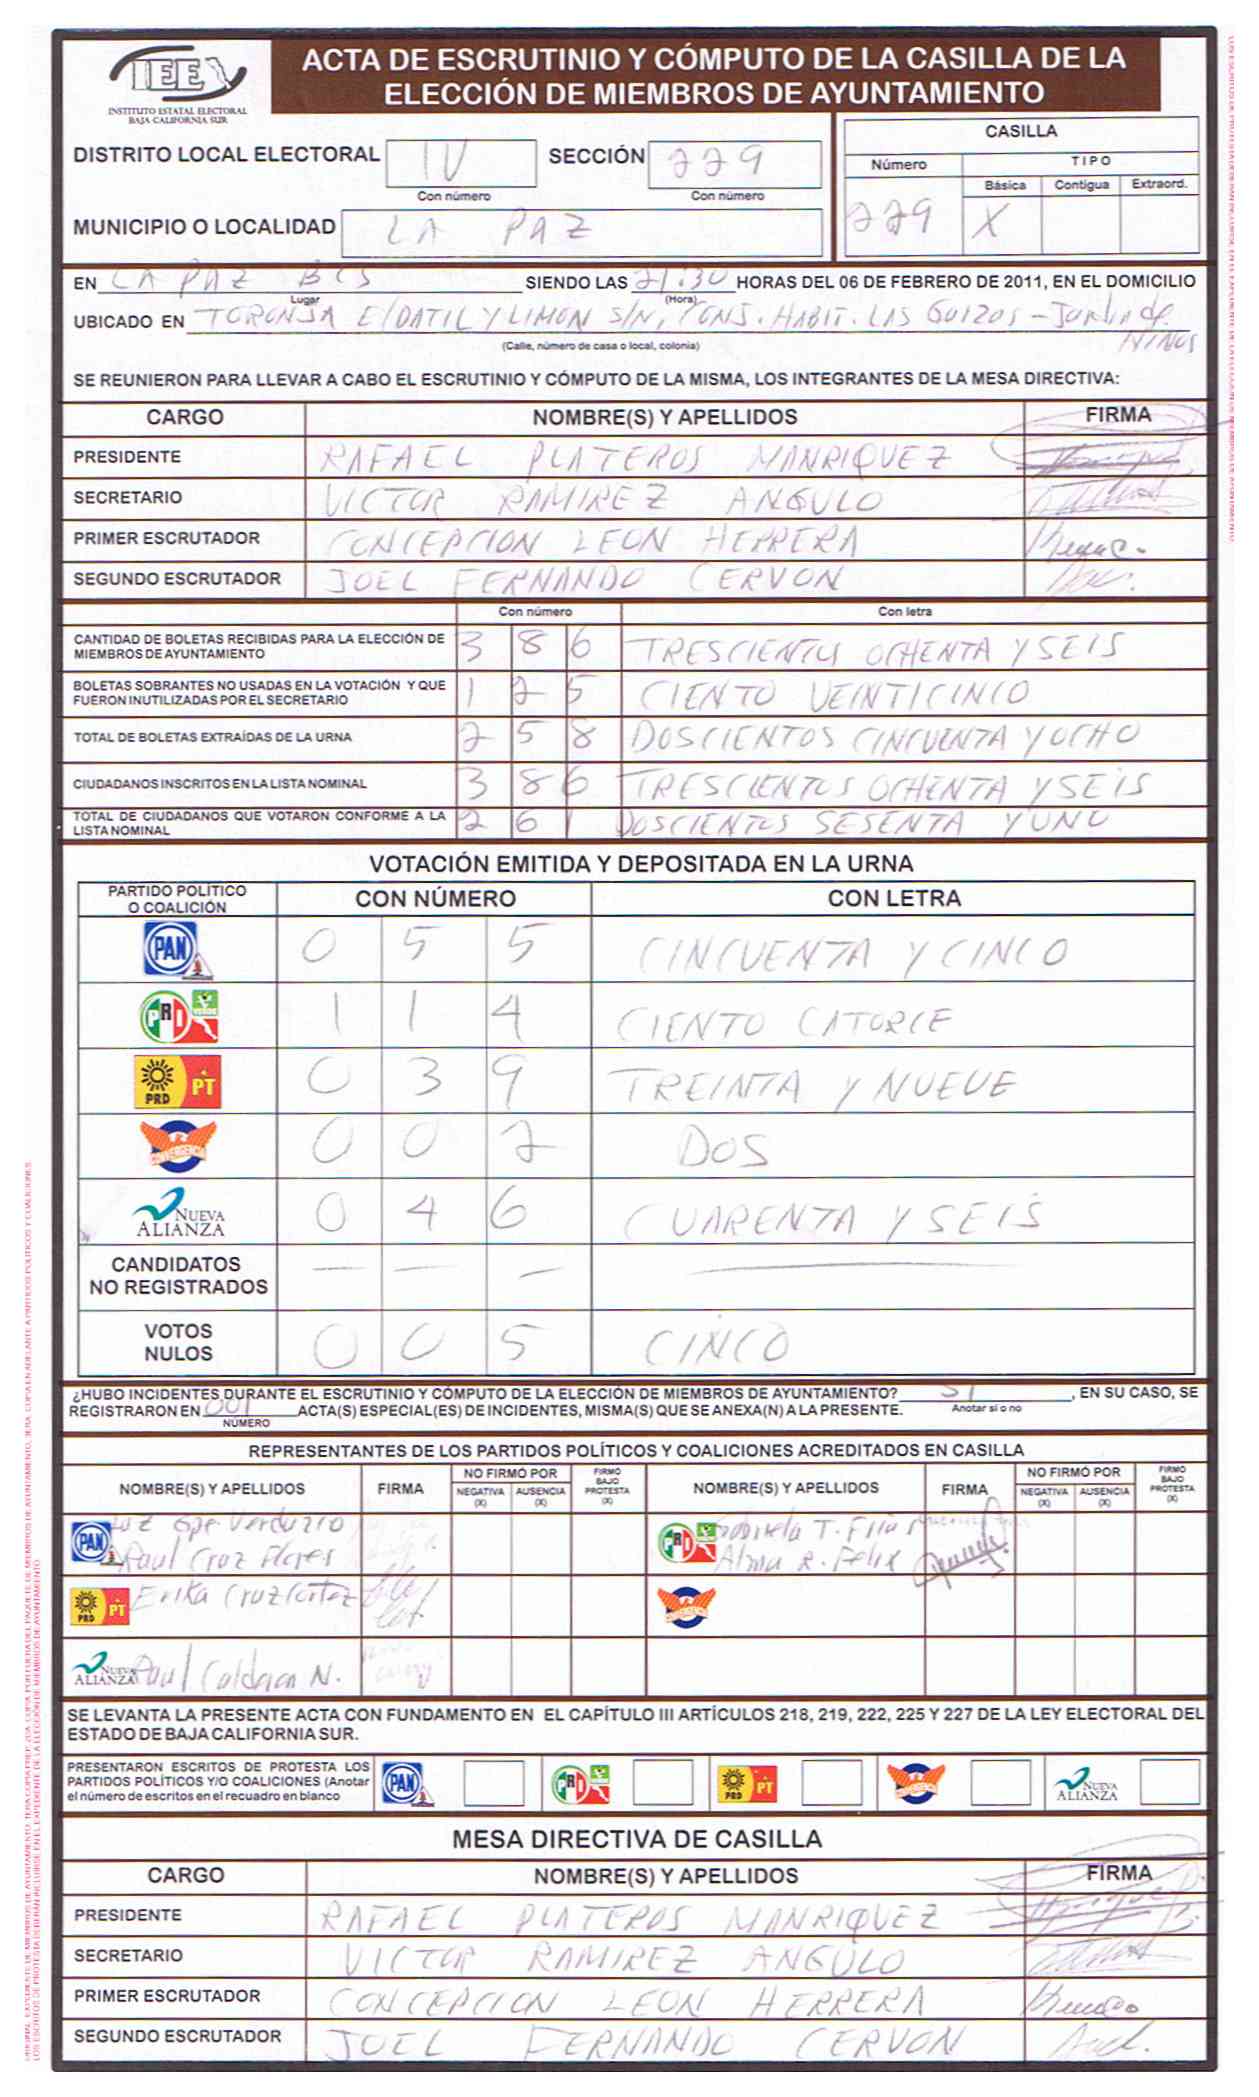 IEE
INSTITUTO ESTATAL ELECTORAL
BAJA CALIFORNIA SUR
ACTA DE ESCRUTINIO Y CÓMPUTO DE LA CASILLA DE LA
ELECCIÓN DE MIEMBROS DE AYUNTAMIENTO
DISTRITO LOCAL ELECTORAL IV SECCIÓN 229
Con número Con número
MUNICIPIO O LOCALIDAD LA PAZ
CASILLA
Número TIPO
Básica Contigua Extraord.
229 X
EN LA PAZ BCS SIENDO LAS 21:30 HORAS DEL 06 DE FEBRERO DE 2011, EN EL DOMICILIO
Lugar (Hora)
UBICADO EN TORONJA E/DATIL Y LIMON S/N, CONJ. HABIT. LAS GUIZAS - Jardin de
NIÑOS
(Calle, número de casa o local, colonia)
SE REUNIERON PARA LLEVAR A CABO EL ESCRUTINIO Y CÓMPUTO DE LA MISMA, LOS INTEGRANTES DE LA MESA DIRECTIVA:
CARGO NOMBRE(S) Y APELLIDOS FIRMA
PRESIDENTE RAFAEL PLATEROS MANRIQUEZ
SECRETARIO VICTOR RAMIREZ ANGULO
PRIMER ESCRUTADOR CONCEPCION LEON HERRERA
SEGUNDO ESCRUTADOR JOEL FERNANDO CERVON
Con número Con letra
CANTIDAD DE BOLETAS RECIBIDAS PARA LA ELECCIÓN DE
MIEMBROS DE AYUNTAMIENTO 3 8 6 TRESCIENTOS OCHENTA Y SEIS
BOLETAS SOBRANTES NO USADAS EN LA VOTACIÓN Y QUE
FUERON INUTILIZADAS POR EL SECRETARIO 1 2 5 CIENTO VEINTICINCO
TOTAL DE BOLETAS EXTRAÍDAS DE LA URNA 2 5 8 DOSCIENTOS CINCUENTA Y OCHO
CIUDADANOS INSCRITOS EN LA LISTA NOMINAL 3 8 6 TRESCIENTOS OCHENTA Y SEIS
TOTAL DE CIUDADANOS QUE VOTARON CONFORME A LA
LISTA NOMINAL 2 6 1 DOSCIENTOS SESENTA Y UNO
VOTACIÓN EMITIDA Y DEPOSITADA EN LA URNA
PARTIDO POLÍTICO
O COALICIÓN CON NÚMERO CON LETRA
PAN 0 5 5 CINCUENTA Y CINCO
PRI VERDE 1 1 4 CIENTO CATORCE
PRD PT 0 3 9 TREINTA Y NUEVE
CONVERGENCIA 0 0 2 DOS
NUEVA ALIANZA 0 4 6 CUARENTA Y SEIS
CANDIDATOS
NO REGISTRADOS — — — —
VOTOS
NULOS 0 0 5 CINCO
¿HUBO INCIDENTES DURANTE EL ESCRUTINIO Y CÓMPUTO DE LA ELECCIÓN DE MIEMBROS DE AYUNTAMIENTO? SI, EN SU CASO, SE
REGISTRARON EN 001 ACTA(S) ESPECIAL(ES) DE INCIDENTES, MISMA(S) QUE SE ANEXA(N) A LA PRESENTE. Anotar sí o no
NÚMERO
REPRESENTANTES DE LOS PARTIDOS POLÍTICOS Y COALICIONES ACREDITADOS EN CASILLA
NOMBRE(S) Y APELLIDOS FIRMA NO FIRMÓ POR NEGATIVA (X) AUSENCIA (X) FIRMÓ BAJO PROTESTA (X) NOMBRE(S) Y APELLIDOS FIRMA NO FIRMÓ POR NEGATIVA (X) AUSENCIA (X) FIRMÓ BAJO PROTESTA (X)
PAN Luz Gpe. Verduzco PRI Gabriela T. Frias
Raul Cruz Flores Alma R. Felix
PRD PT Erika Cruz Cortez CONVERGENCIA
NUEVA ALIANZA Raul Calderon N.
SE LEVANTA LA PRESENTE ACTA CON FUNDAMENTO EN EL CAPÍTULO III ARTÍCULOS 218, 219, 222, 225 Y 227 DE LA LEY ELECTORAL DEL
ESTADO DE BAJA CALIFORNIA SUR.
PRESENTARON ESCRITOS DE PROTESTA LOS
PARTIDOS POLÍTICOS Y/O COALICIONES (Anotar
el número de escritos en el recuadro en blanco
PAN PRI PRD PT CONVERGENCIA NUEVA ALIANZA
MESA DIRECTIVA DE CASILLA
CARGO NOMBRE(S) Y APELLIDOS FIRMA
PRESIDENTE RAFAEL PLATEROS MANRIQUEZ
SECRETARIO VICTOR RAMIREZ ANGULO
PRIMER ESCRUTADOR CONCEPCION LEON HERRERA
SEGUNDO ESCRUTADOR JOEL FERNANDO CERVON